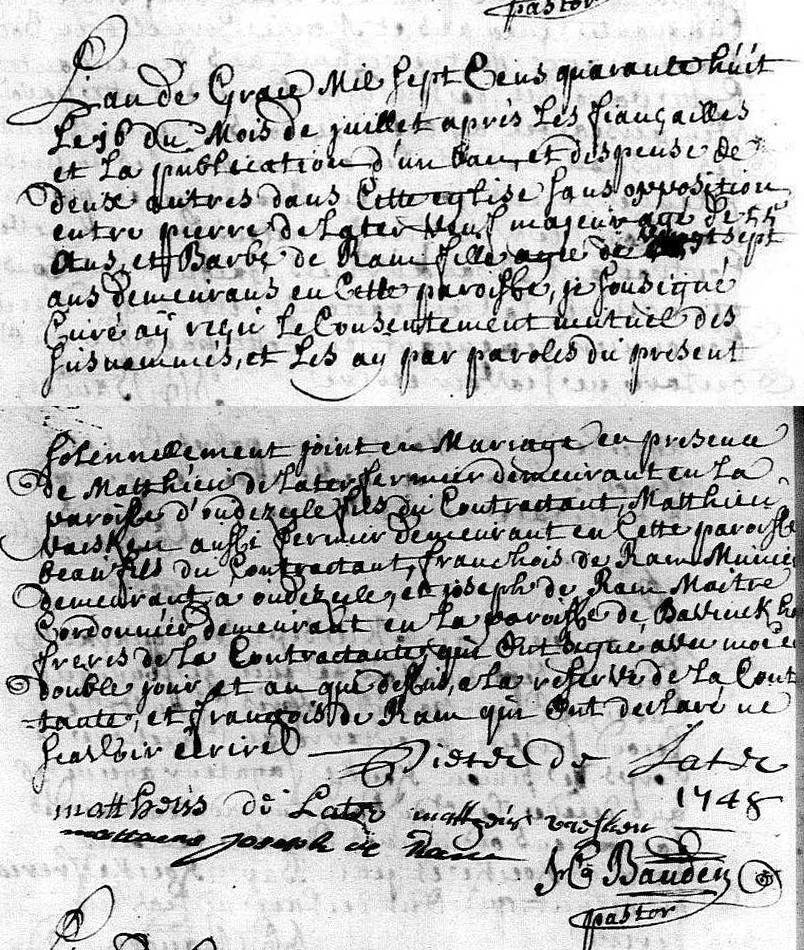 pastor
L'an de Grace Mil sept Cens quarante huit
Le 16 du Mois de juillet après Les fiançailles
et La publication d'un ban, et dispense de
deux autres dans Cette eglise sans opposition
entre pierre de Later veuf majeur agé de 55
Ans, et Barbe de Ram fille agée de vingt sept
ans demeurans en Cette paroisse, je sousigné
Curé aÿ reçu Le Consentement mutuel des
susnommés, et Les aÿ par paroles du present
solennellement joint en Mariage en presence
de Matthieu de Later fermier demeurant en La
paroisse d'oudezeele fils du Contractant, Matthieu
Vaesken aussi fermier demeurant en Cette paroisse
beaufils du Contractant, franchois de Ram
demeurant a oudezeele, et joseph de Ram Maitre
Cordonnier demeurant en La paroisse de Bavinckho
freres de La Contractante, qui Ont signé avec moi ce
double jour et an que dessus, a La reserve de La Cont
-tante, et françois de Ram qui Ont declaré ne
scavoir ecrire
Pieter de Later
1748
mattheis de Later matheis vaesken
joseph de Ram
Bauden
pastor